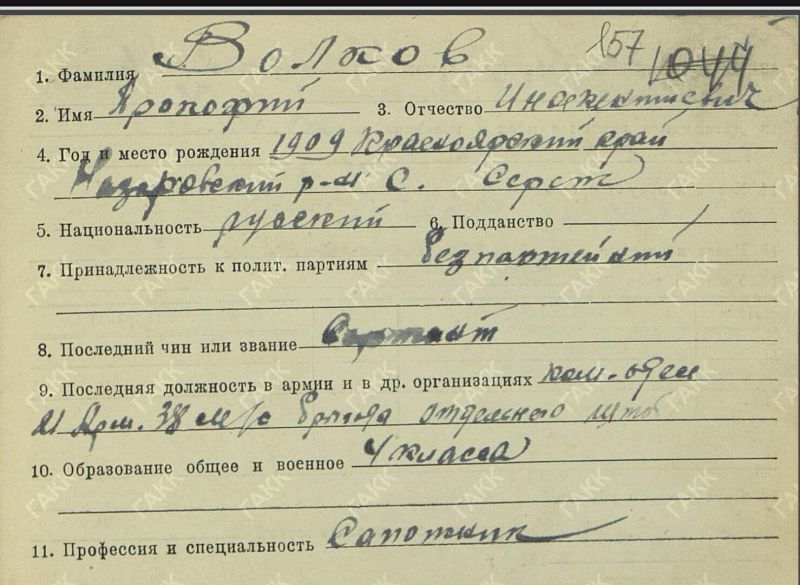 157 1044
1. Фамилия Волков
2. Имя Прокофий 3. Отчество Инокентиевич
4. Год и место рождения 1909 Красноярский край
Назаровский р-н с. Сереж
5. Национальность русский 6. Подданство
7. Принадлежность к полит. партиям безпартейный
8. Последний чин или звание Сержант
9. Последняя должность в армии и в др. организациях ком. отдел
21 Арм. 38 м/с бригада отдельного
10. Образование общее и военное 4 класса
11. Профессия и специальность Сапожник
ГАКК